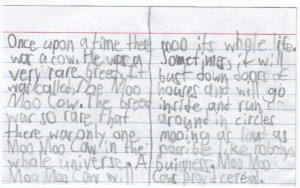 Once upon a time there
was a cow. He was a
very rare breed. It
was called The Moo
Moo Cow. The breed
was so rare that
there was only one
Moo Moo Cow in the
whole universe. A
Moo Moo Cow will
moo its whole life.
Sometimes it will
bust down doors of
houses and will go
inside and run
around in circles
mooing as loud as
possible like nobodys
buisness. Moo Moo
Cow cereal.